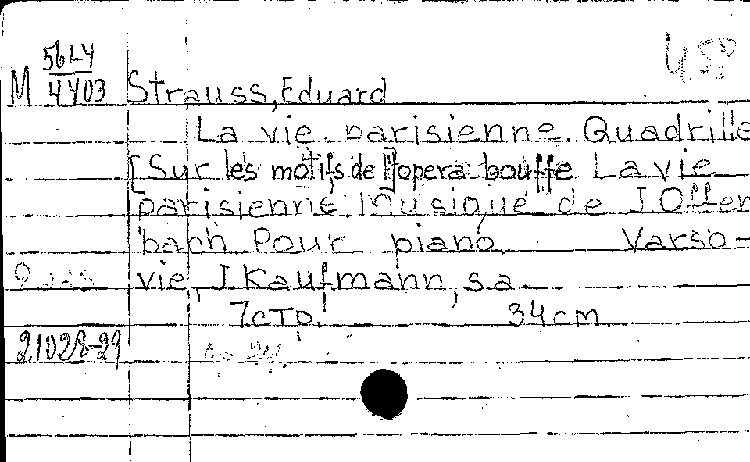 М 56LY/4403
Strauss, Eduard
La vie parisienne. Quadrille
[Sur les motifs de l'opera bouffe La vie
parisienne, Musique de J Offen
bach Pour piano. Varso-
vie, J. Kaufmann, s.a.
7 стр. 34 cm
21028-29